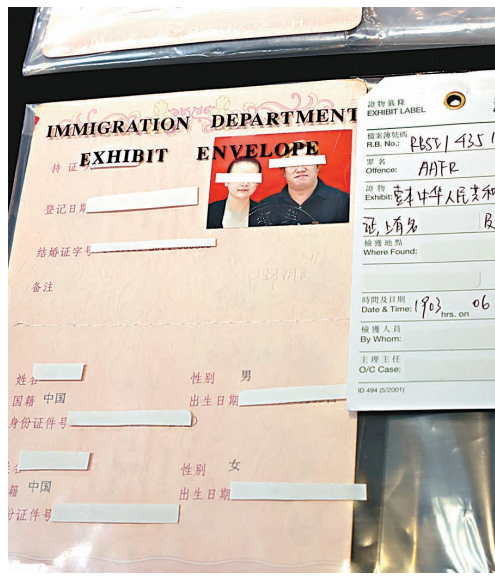 IMMIGRATION DEPARTMENT
EXHIBIT ENVELOPE
持证
登记日期
结婚证字号
备注
姓名
性别 男
国籍 中国
出生日期
身份证件号
性别 女
籍 中国
出生日期
份证件号
證物籤條
EXHIBIT LABEL
檔案簿號碼
R.B. No.: RB551 4351
罪名
Offence: AAFR
證物
Exhibit: 壹本中华人民共和
证,上有名 及
檢獲地點
Where Found:
時間及日期
Date & Time: 1903 hrs. on 06
檢獲人員
By Whom:
主理主任
O/C Case:
ID 494 (5/2001)